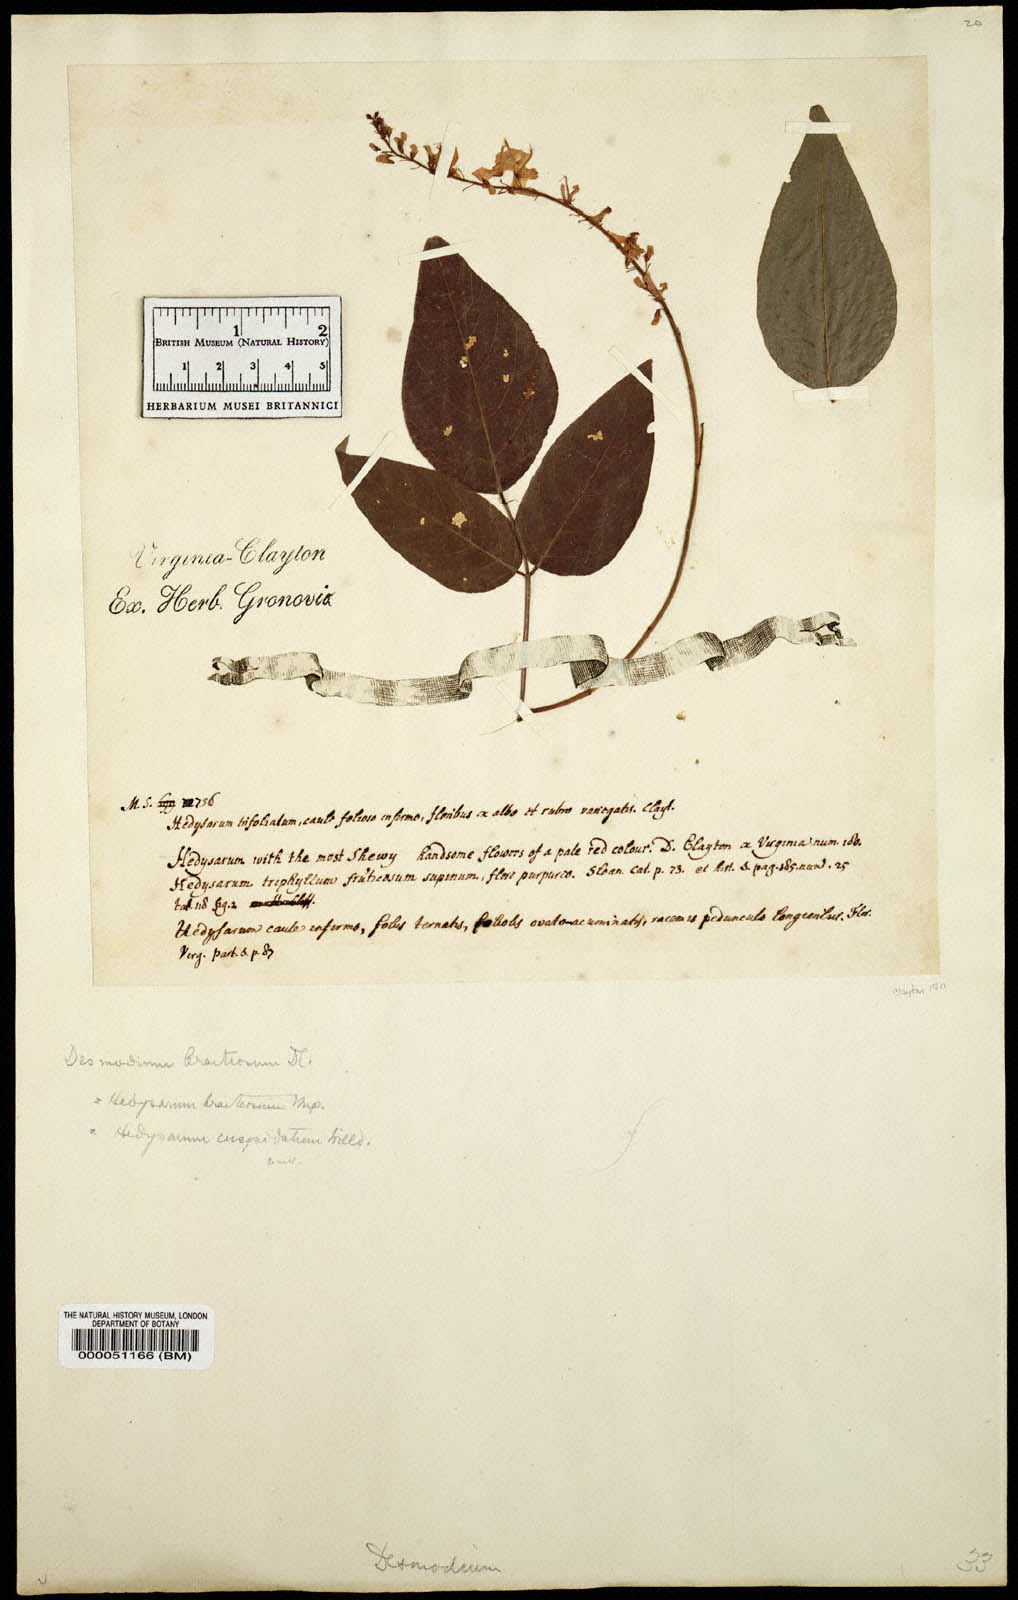 20
1 2
British Museum (Natural History)
1 2 3 4 5
HERBARIUM MUSEI BRITANNICI
Virginia-Clayton
Ex. Herb. Gronovii
M. S. 756
Hedysarum trifoliatum, caule folioso infirmo, floribus ex albo et rubro variegatis. Clayt.
Hedysarum with the most Shewy handsome flowers of a pale red colour. D. Clayton ex Virginia num. 180.
Hedysarum triphyllum fruticosum supinum, flore purpureo. Sloan. Cat. p. 73. et hist. 1. pag. 185. num. 25
tab. 118 fig. 2
Hedysarum caule infirmo, foliis ternatis, foliolis ovato-acuminatis, racemis pedunculo longioribus. Flor.
Virg. part. 2. p. 87
Desmodium bracteosum DC.
= Hedysarum bracteosum Mx.
= Hedysarum cuspidatum Willd.
THE NATURAL HISTORY MUSEUM, LONDON
DEPARTMENT OF BOTANY
000051166 (BM)
Desmodium
33